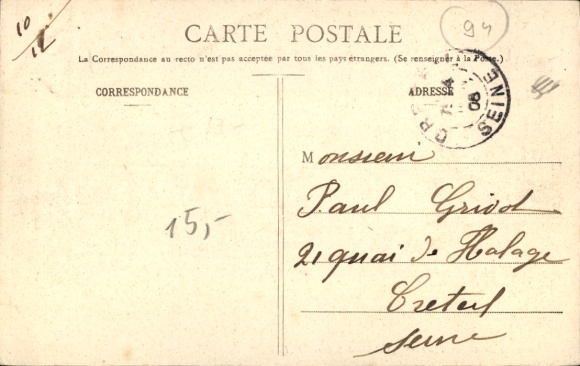 10
12
94
CARTE POSTALE
La Correspondance au recto n'est pas acceptée par tous les pays étrangers. (Se renseigner à la Poste.)
CORRESPONDANCE
ADRESSE
08
SEINE
Monsieur
Paul Grivot
21 quai de Halage
Creteil
Seine
15,-